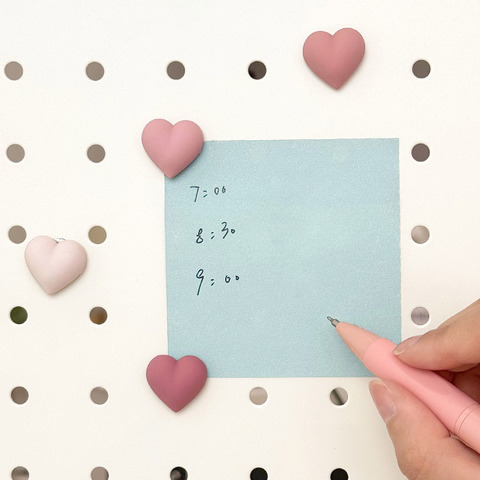 7:00
8:30
9:00